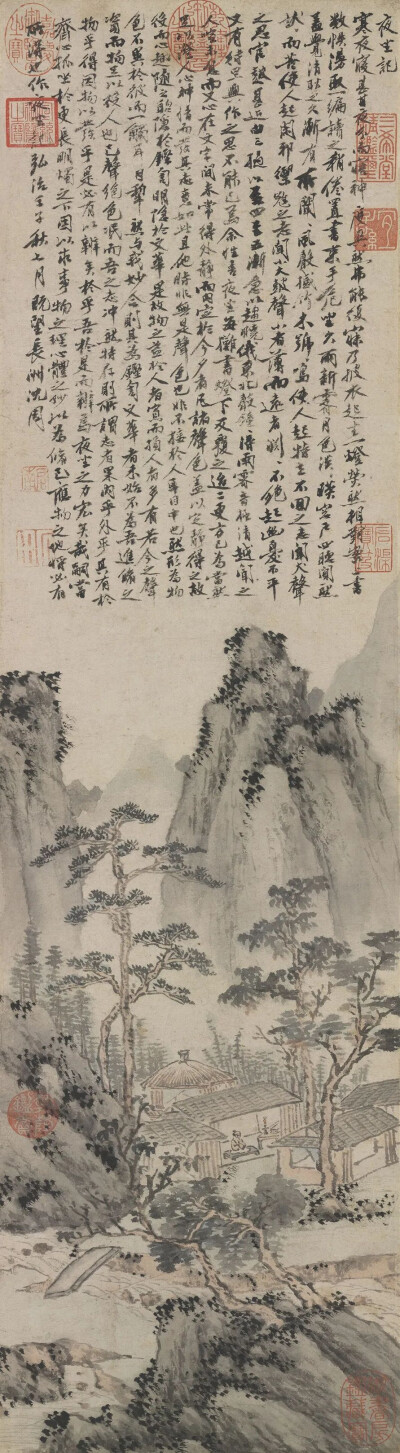 夜坐記
寒夜寢甚甘夜分而寤神度爽然弗能復寐乃披衣起坐一燈熒然相對案上書
數帙漫取一編讀之稍倦置書束手危坐久雨新霽月色淡淡映窗戶四聽闃然
蓋覺清耿之久漸有所聞聞風聲撼竹木號號鳴使人起特立不回之志聞犬聲
狺狺而苦使人起閑邪禦寇之志聞小大鼓聲小者薄而遠者淵淵不絕起幽憂不平
之思官鼓甚近由三撾以至四至五漸急以趨曉俄東北聲鐘鐘得雨霽音極清越聞之
又有待旦興作之思不能已焉余性喜夜坐每攤書燈下反覆之迨二更方已為當然
人喧未息而又心在文字間未常得外靜而內定於今夕者凡諸聲色蓋以定靜得之故
足以澄人心神情而發其志意如此且他時非無是聲色也非不接於人耳目中也然形為物
役而心趣隨之聰隱於鏗訇明隱於文華是故物之益於人者寡而損人者多有若今之聲
色不異於彼而一觸耳目犁然與我妙合則其為鏗訇文華者未始不為吾進修之
資而物足以役人也已聲絕色泯而吾之志沖然特存則所謂志者果內乎外乎其有於
物乎得因物以發乎是必有以辨矣於乎吾於是而辨焉夜坐之力宏矣哉嗣當
齋心孤坐於更長明燭之下因以求事物之理心體之妙以為修己應物之地將必有
所得也作夜坐記弘治壬子秋七月既望長洲沈周